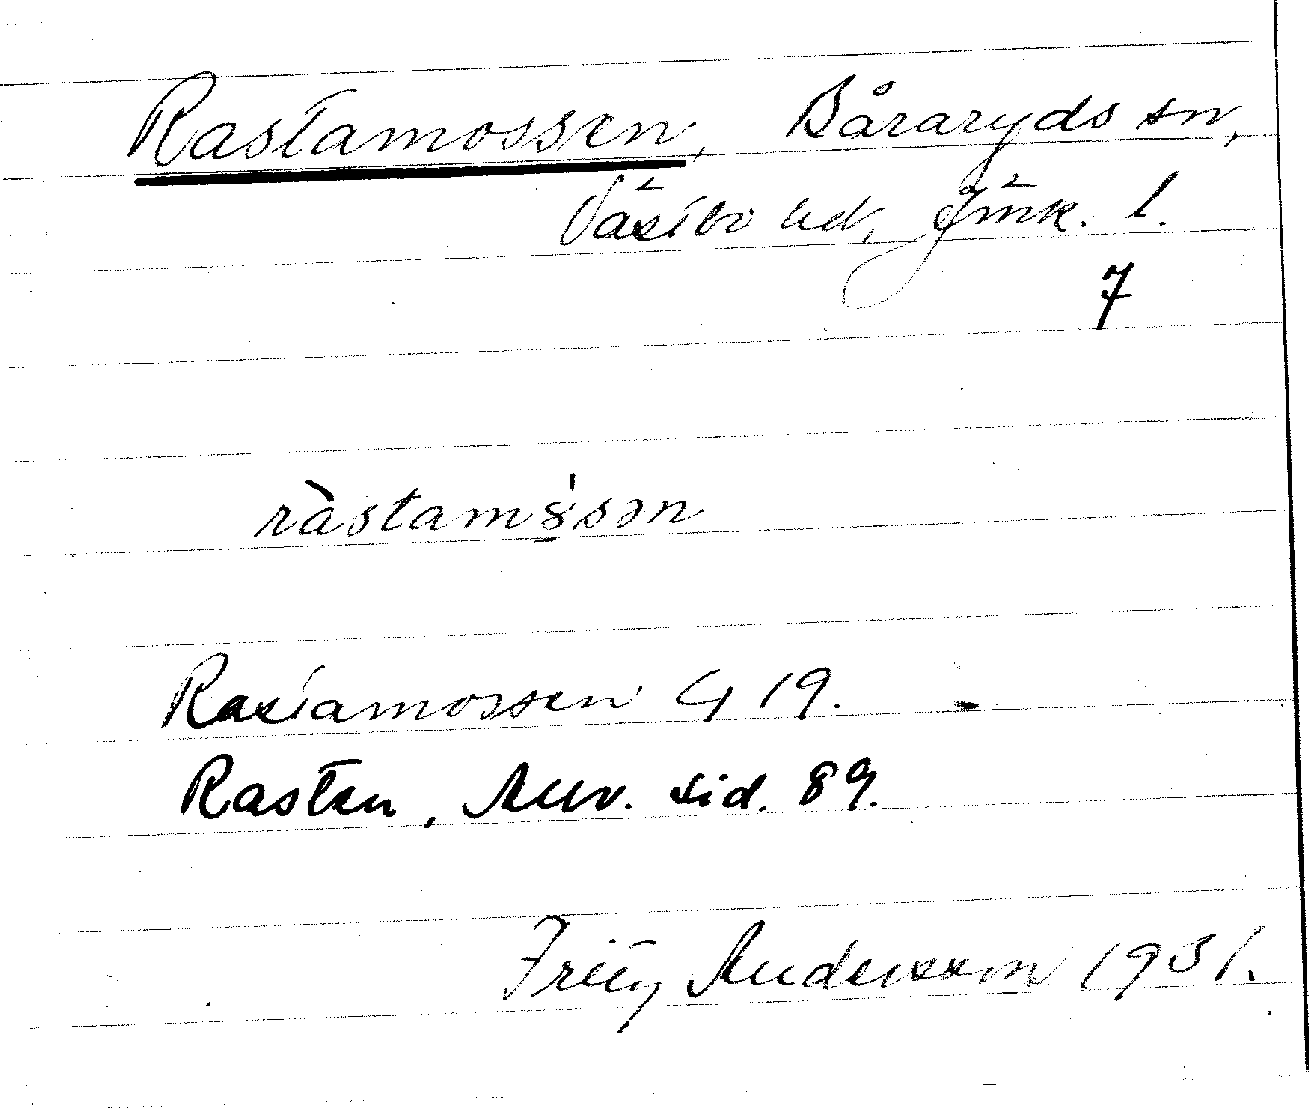 Rastamossen, Båraryds sn,
Västbo hd, Jönk. l.
7
ràstamꞝ̀sən
Rastamossen G 19.
Rasten, Auv. sid. 89.
Fritz Andersson 1931.